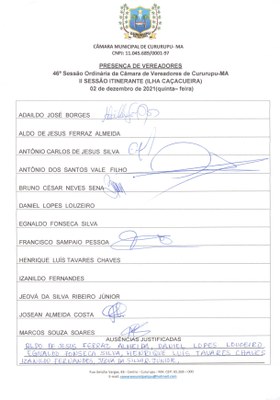 CÂMARA MUNICIPAL DE CURURUPU- MA
CNPJ: 11.045.689/0001-97
PRESENÇA DE VEREADORES
46ª Sessão Ordinária da Câmara de Vereadores de Cururupu-MA
II SESSÃO ITINERANTE (ILHA CAÇACUEIRA)
02 de dezembro de 2021(quinta– feira)
ADAILDO JOSÉ BORGES
ALDO DE JESUS FERRAZ ALMEIDA
ANTÔNIO CARLOS DE JESUS SILVA
ANTÔNIO DOS SANTOS VALE FILHO
BRUNO CÉSAR NEVES SENA
DANIEL LOPES LOUZEIRO
EGNALDO FONSECA SILVA
FRANCISCO SAMPAIO PESSOA
HENRIQUE LUÍS TAVARES CHAVES
IZANILDO FERNANDES
JEOVÁ DA SILVA RIBEIRO JÚNIOR
JOSEAN ALMEIDA COSTA
MARCOS SOUZA SOARES
AUSÊNCIAS JUSTIFICADAS
ALDO DE JESUS FERRAZ ALMEIDA, DANIEL LOPES LOUZEIRO
EGNALDO FONSECA SILVA, HENRIQUE LUÍS TAVARES CHAVES
IZANILDO FERNANDES, JEOVÁ DA SILVA JÚNIOR.